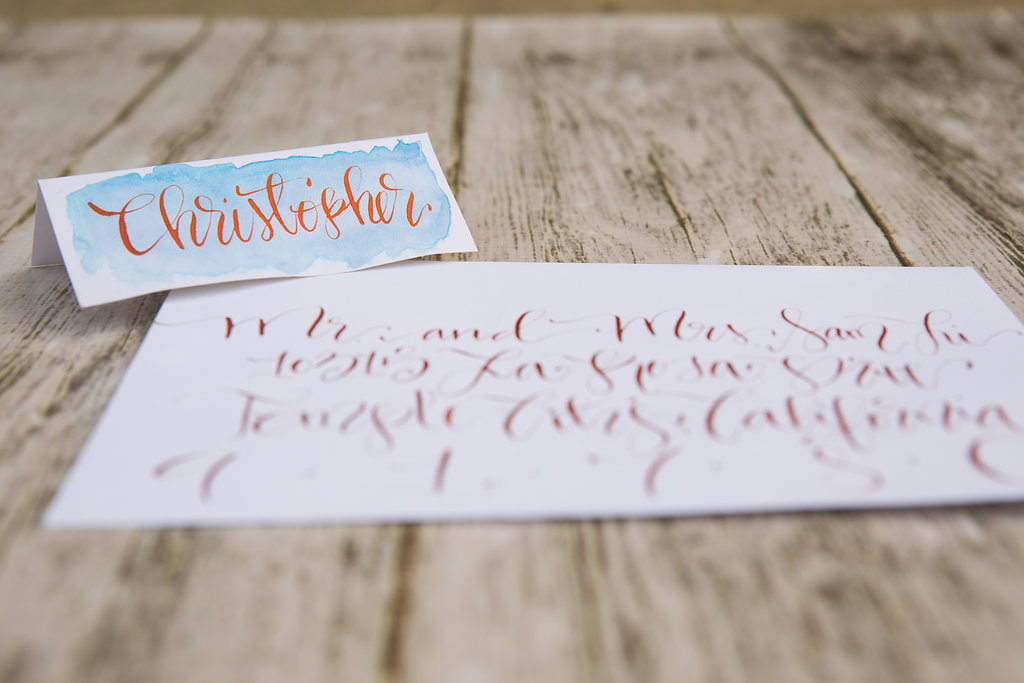 Christopher
Mr. and Mrs. Sam Su
La Rosa Drive
Temple City, California
9 1 7 8 0